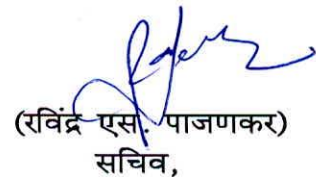 (रविंद्र एस. पाजणकर)
सचिव,